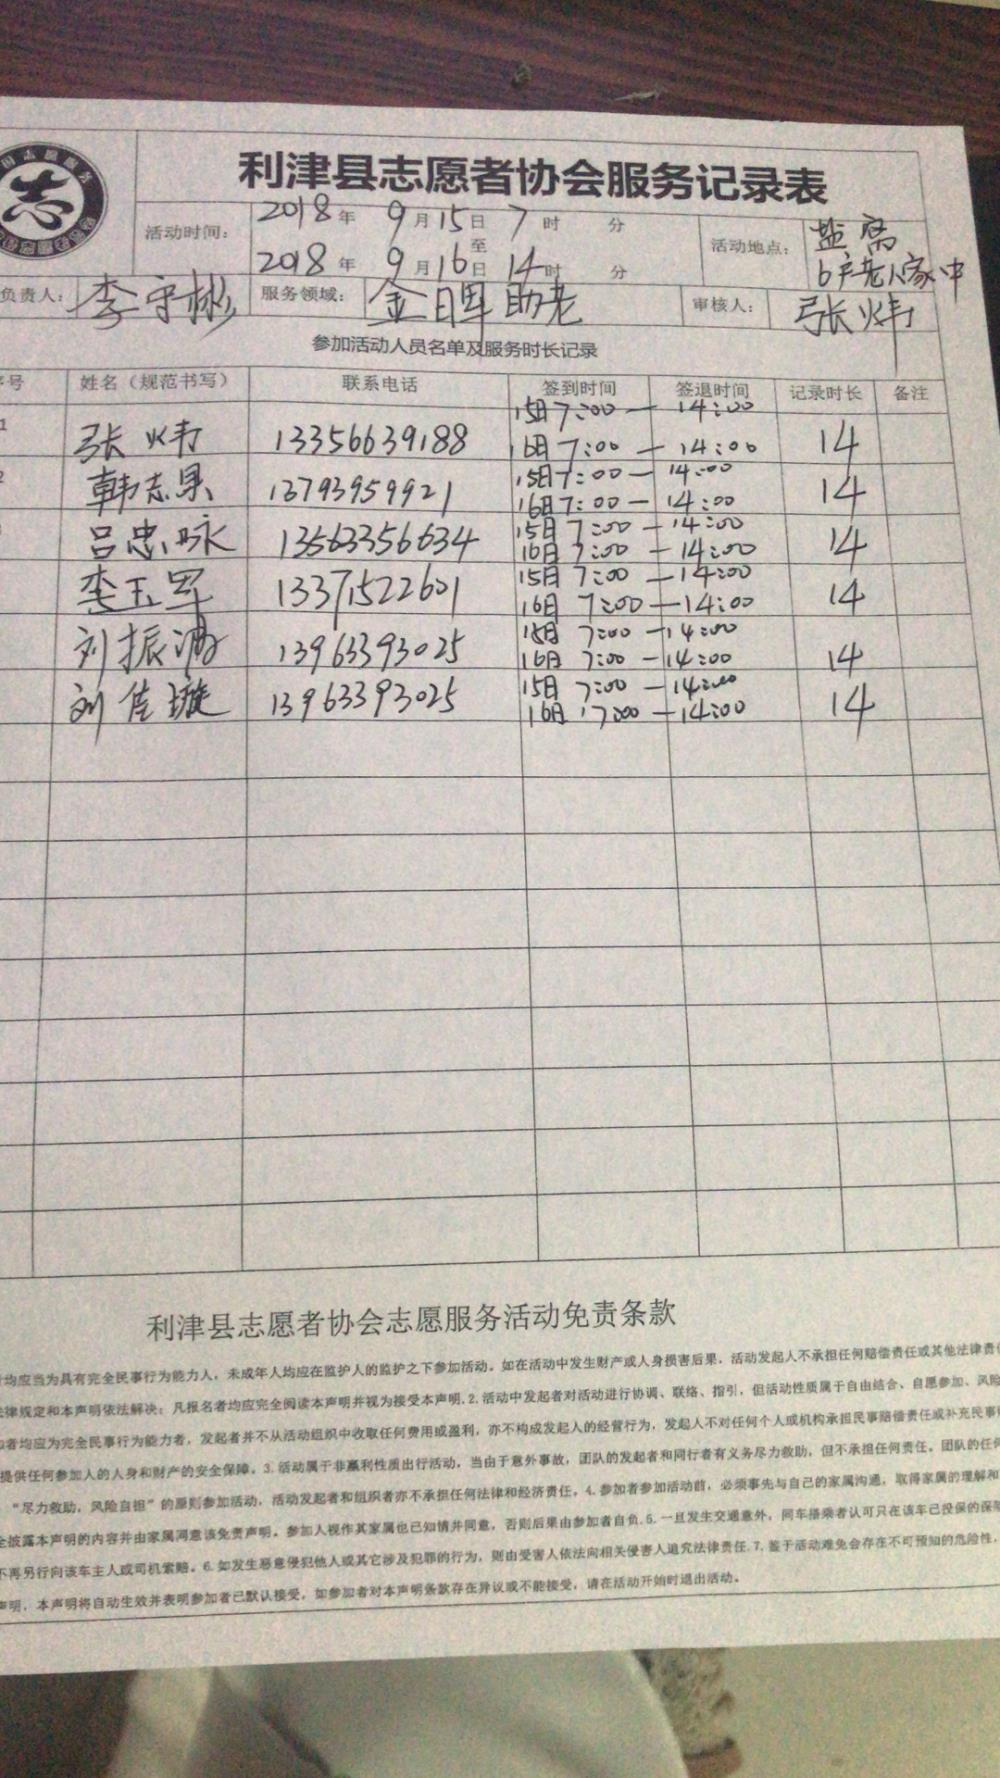 利津县志愿者协会服务记录表
活动时间： 2018年 9月15日 7时 分
至
2018年 9月16日 14时 分
活动地点： 盐窝
6户老人家中
负责人： 李守彬 服务领域： 金晖助老 审核人： 张炜
参加活动人员名单及服务时长记录
号 姓名（规范书写） 联系电话 签到时间 签退时间 记录时长 备注
1 张炜 13356639188 15日7:00—14:00 14
16日7:00—14:00
2 韩志果 13793959921 15日7:00—14:00 14
16日7:00—14:00
吕忠咏 13563356634 15日7:00—14:00 14
16日7:00—14:00
李玉军 13371522601 15日7:00—14:00 14
16日7:00—14:00
刘振 13963393025 15日7:00—14:00 14
16日7:00—14:00
刘佳璇 13963393025 15日7:00—14:00 14
16日17:00—14:00
利津县志愿者协会志愿服务活动免责条款
均应当为具有完全民事行为能力人，未成年人均应在监护人的监护之下参加活动。如在活动中发生财产或人身损害后果，活动发起人不承担任何赔偿责任或其他法律责
律规定和本声明依法解决；凡报名者均应完全阅读本声明并视为接受本声明.2.活动中发起者对活动进行协调、联络、指引，但活动性质属于自由结合、自愿参加、风险
者均应为完全民事行为能力者，发起者并不从活动组织中收取任何费用或盈利，亦不构成发起人的经营行为，发起人不对任何个人或机构承担民事赔偿责任或补充民事
提供任何参加人的人身和财产的安全保障。3.活动属于非赢利性质出行活动，当由于意外事故，团队的发起者和同行者有义务尽力救助，但不承担任何责任。团队的任
“尽力救助，风险自担”的原则参加活动，活动发起者和组织者亦不承担任何法律和经济责任。4.参加者参加活动前，必须事先与自己的家属沟通，取得家属的理解和
全披露本声明的内容并由家属同意该免责声明。参加人视作其家属也已知情并同意，否则后果由参加者自负.5.一旦发生交通意外，同车搭乘者认可只在该车已投保的保
不再另行向该车主人或司机索赔。6.如发生恶意侵犯他人或其它涉及犯罪的行为，则由受害人依法向相关侵害人追究法律责任.7.鉴于活动难免会存在不可预知的危险性，
声明，本声明将自动生效并表明参加者已默认接受，如参加者对本声明条款存在异议或不能接受，请在活动开始时退出活动。